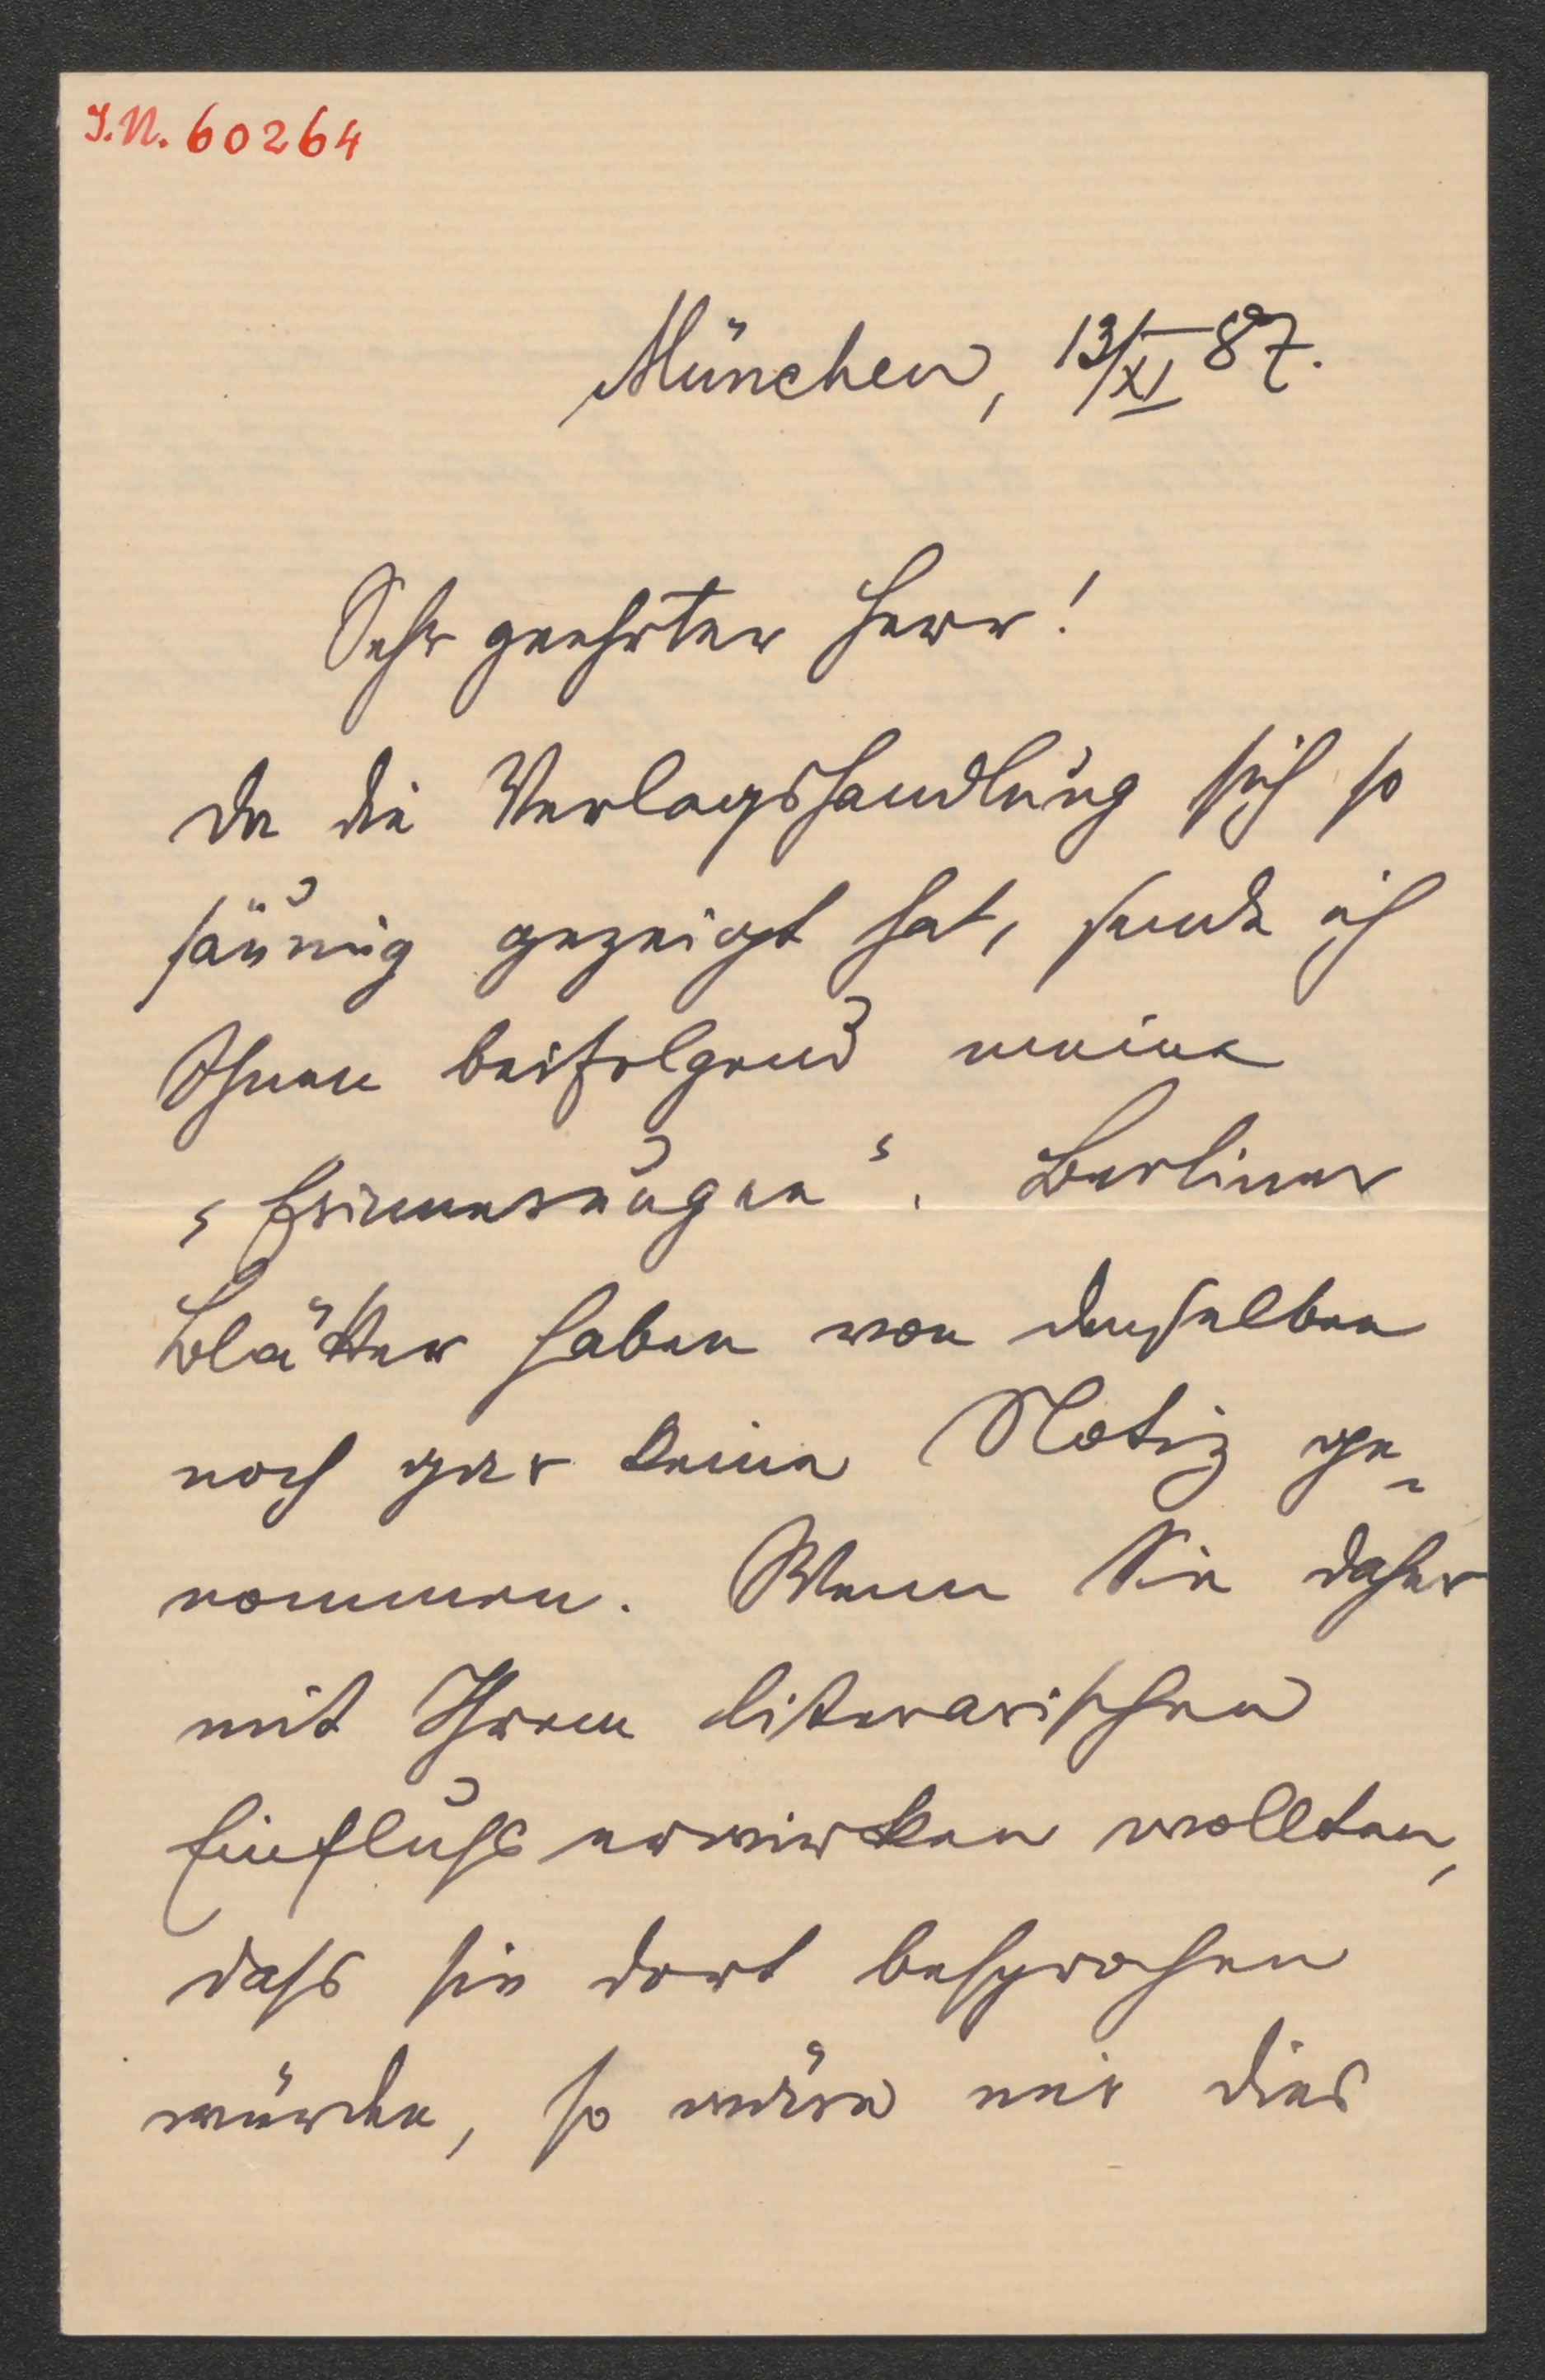 I.N. 60264
München, 13/XI 87.
Sehr geehrter Herr!
da die Verlagshandlung sich so
säumig gezeigt hat, sende ich
Ihnen beifolgend meine
„Erinnerungen“. Berliner
Blätter haben von denselben
noch gar keine Notiz ge-
nommen. Wenn Sie daher
mit Ihrem literarischen
Einfluß erwirken wollten,
daß sie dort besprochen
würden, so wäre mir dies